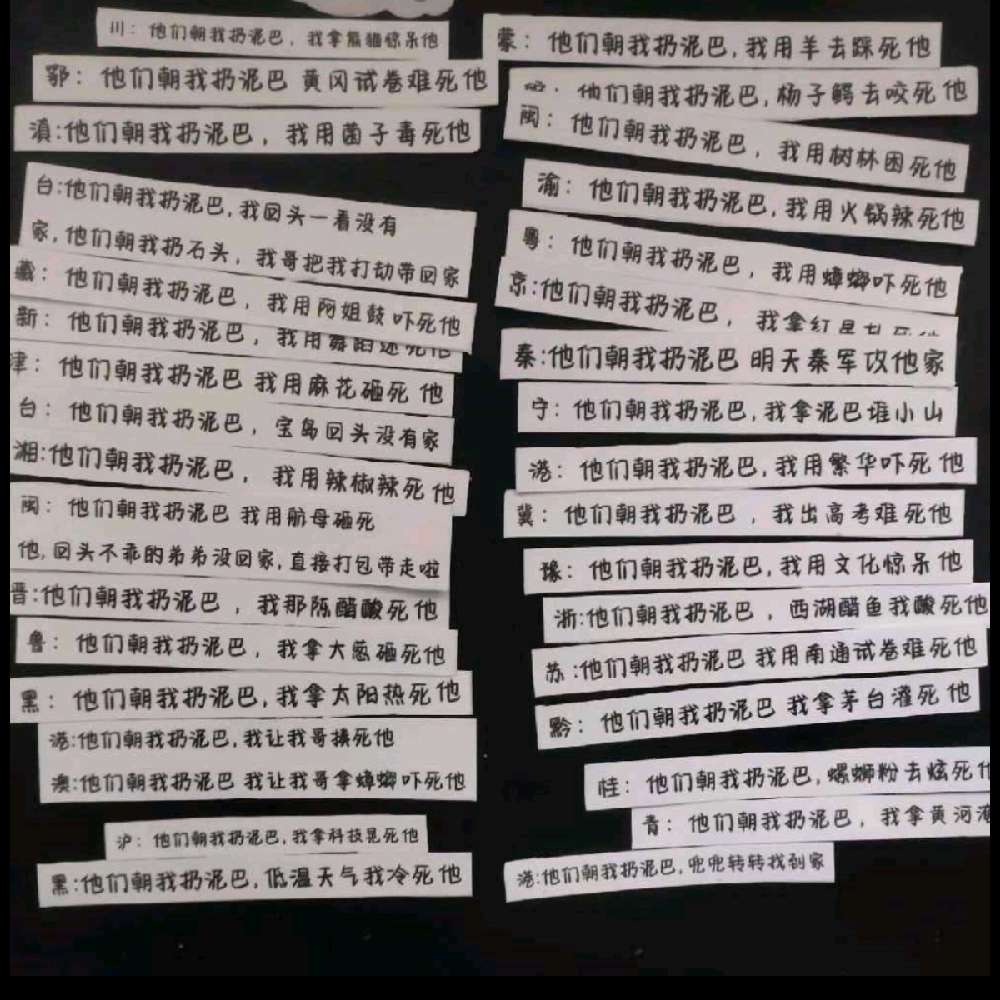 川：他们朝我扔泥巴，我拿熊猫惊呆他
鄂：他们朝我扔泥巴 黄冈试卷难死他
滇：他们朝我扔泥巴，我用菌子毒死他
台：他们朝我扔泥巴，我回头一看没有
家，他们朝我扔石头，我哥把我打劫带回家
藏：他们朝我扔泥巴，我用阿姐鼓吓死他
新：他们朝我扔泥巴，我用舞蹈迷死他
津：他们朝我扔泥巴 我用麻花砸死他
台：他们朝我扔泥巴，宝岛回头没有家
湘：他们朝我扔泥巴，我用辣椒辣死他
闽：他们朝我扔泥巴 我用航母砸死
他，回头不乖的弟弟没回家，直接打包带走啦
晋：他们朝我扔泥巴，我那陈醋酸死他
鲁：他们朝我扔泥巴，我拿大葱砸死他
黑：他们朝我扔泥巴，我拿太阳热死他
港：他们朝我扔泥巴，我让我哥揍死他
澳：他们朝我扔泥巴 我让我哥拿蟑螂吓死他
沪：他们朝我扔泥巴，我拿科技晃死他
黑：他们朝我扔泥巴，低温天气我冷死他
蒙：他们朝我扔泥巴，我用羊去踩死他
他们朝我扔泥巴，杨子鳄去咬死他
闽：他们朝我扔泥巴，我用树林困死他
渝：他们朝我扔泥巴，我用火锅辣死他
粤：他们朝我扔泥巴，我用蟑螂吓死他
京：他们朝我扔泥巴，我拿红
秦：他们朝我扔泥巴 明天秦军攻他家
宁：他们朝我扔泥巴，我拿泥巴堆小山
港：他们朝我扔泥巴，我用繁华吓死他
冀：他们朝我扔泥巴，我出高考难死他
豫：他们朝我扔泥巴，我用文化惊呆他
浙：他们朝我扔泥巴，西湖醋鱼我酸死他
苏：他们朝我扔泥巴 我用南通试卷难死他
黔：他们朝我扔泥巴 我拿茅台灌死他
桂：他们朝我扔泥巴，螺蛳粉去炫死他
青：他们朝我扔泥巴，我拿黄河淹
港：他们朝我扔泥巴，兜兜转转找到家